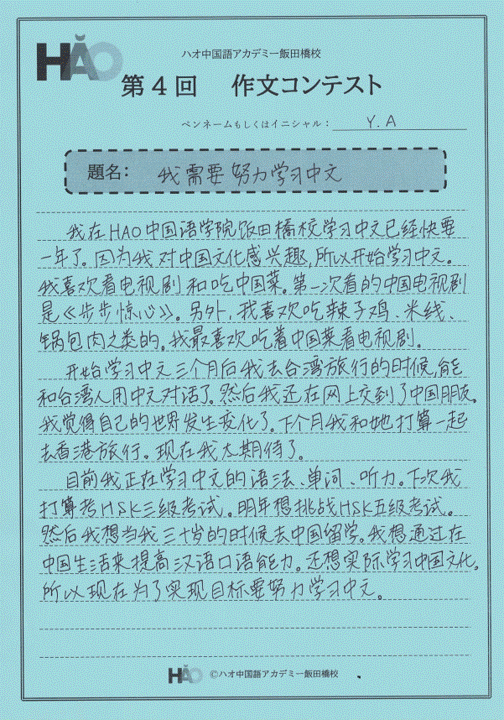 HǍO
ハオ中国語アカデミー飯田橋校
第4回 作文コンテスト
ペンネームもしくはイニシャル: Y.A
題名: 我需要努力学习中文
我在HAO中国语学院饭田橋校学习中文已经快要
一年了。因为我对中国文化感兴趣,所以开始学习中文。
我喜欢看电视剧和吃中国菜。第一次看的中国电视剧
是《步步惊心》。另外,我喜欢吃辣子鸡、米线、
锅包肉之类的。我最喜欢吃着中国菜看电视剧。
开始学习中文三个月后我去台湾旅行的时候,能
和台湾人用中文对话了。然后我还在网上交到了中国朋友。
我觉得自己的世界发生变化了。下个月我和她打算一起
去香港旅行。现在我太期待了。
目前我正在学习中文的语法、单词、听力。下次我
打算考HSK三级考试。明年想挑战HSK五级考试。
然后我想当我三十岁的时候去中国留学。我想通过在
中国生活来提高汉语口语能力。还想实际学习中国文化。
所以现在为了实现目标要努力学习中文。
HǍO ©ハオ中国語アカデミー飯田橋校